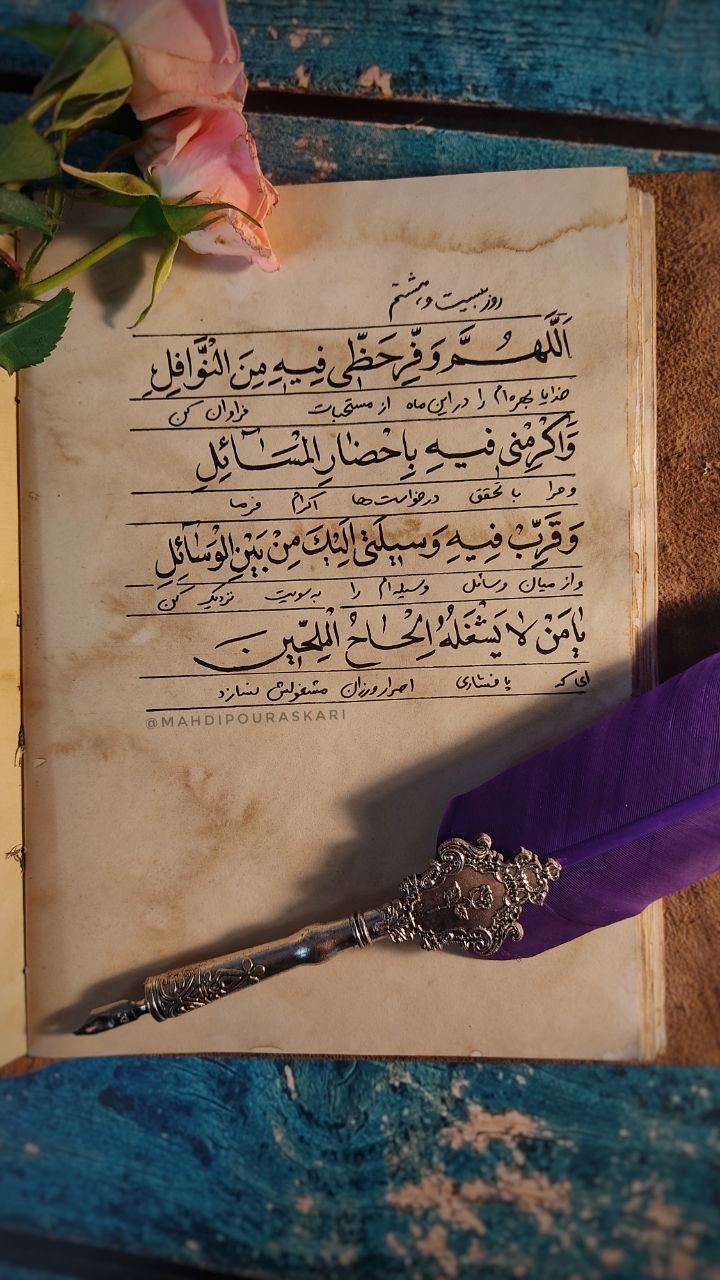 روز بیست و هشتم
اَللّهُمَّ وَفِّر حَظّی فِیهِ مِنَ النَّوَافِلِ
خدایا بهره‌ام را در این ماه از مستحبات فراوان کن
وَاَکْرِمْنی فیهِ بِاِحْضارِ الْمَسَآئِلِ
و مرا با تحقق درخواست‌ها اکرام فرما
وَقَرِّبْ فِیهِ وَسیلَتی اِلَیْكَ مِنْ بَیْنِ الْوَسآئِلِ
و از میان وسائل وسیله‌ام را به سویت نزدیک کن
یامَنْ لا یَشْغَلُهُ اِلْحاحُ الْمُلِحّینَ
ای که پافشاری اصرارورزان مشغولش نسازد
@MAHDIPOURASKARI